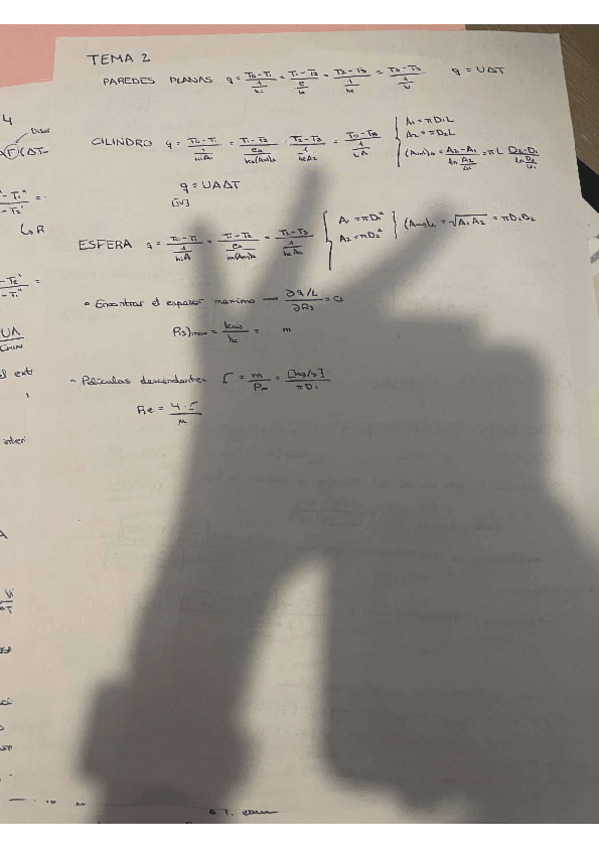 TEMA 2
PAREDES PLANAS q = (T0-T1)/(1/hi) = (T1-T2)/(e/k) = (T2-T3)/(1/he) = (T0-T3)/(1/U) q = UΔT
CILINDRO q = (T0-T1)/(1/hiA1) = (T1-T2)/(ea/ka(Aml)a) = (T2-T3)/(1/heA2) = (T0-T3)/(1/UA)
A1 = πD1L
A2 = πD2L
(Aml)a = (A2-A1)/(ln A2/A1) = πL (D2-D1)/(ln D2/D1)
q = UAΔT
[W]
ESFERA q = (T0-T1)/(1/hiA1) = (T1-T2)/(ea/ka(Amg)a) = (T2-T3)/(1/heA2)
A1 = πD1²
A2 = πD2²
(Amg)a = √A1A2 = πD1D2
• Encontrar el espesor maximo → ∂q/L / ∂R3 = 0
R3)max = kais/ho = m
• Peliculas descendentes Γ = m/Pm = [kg/s]/πDi
Re = 4·Γ/μ
4
UA
el ext
interi